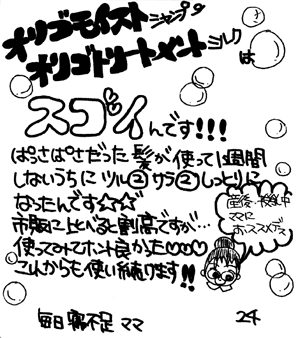 オリゴモイストシャンプー
オリゴトリートメントシルクは
スゴイんです!!!
ぱっさぱさだった髪が使って1週間
しないうちにツル②サラ②しっとりに
なったんです☆☆☆
市販に比べると割高ですが…
使ってみてホント良かった♡♡♡
これからも使い続けます!!
産後・授乳中
ママに
おススメデス
毎日寝不足ママ
24